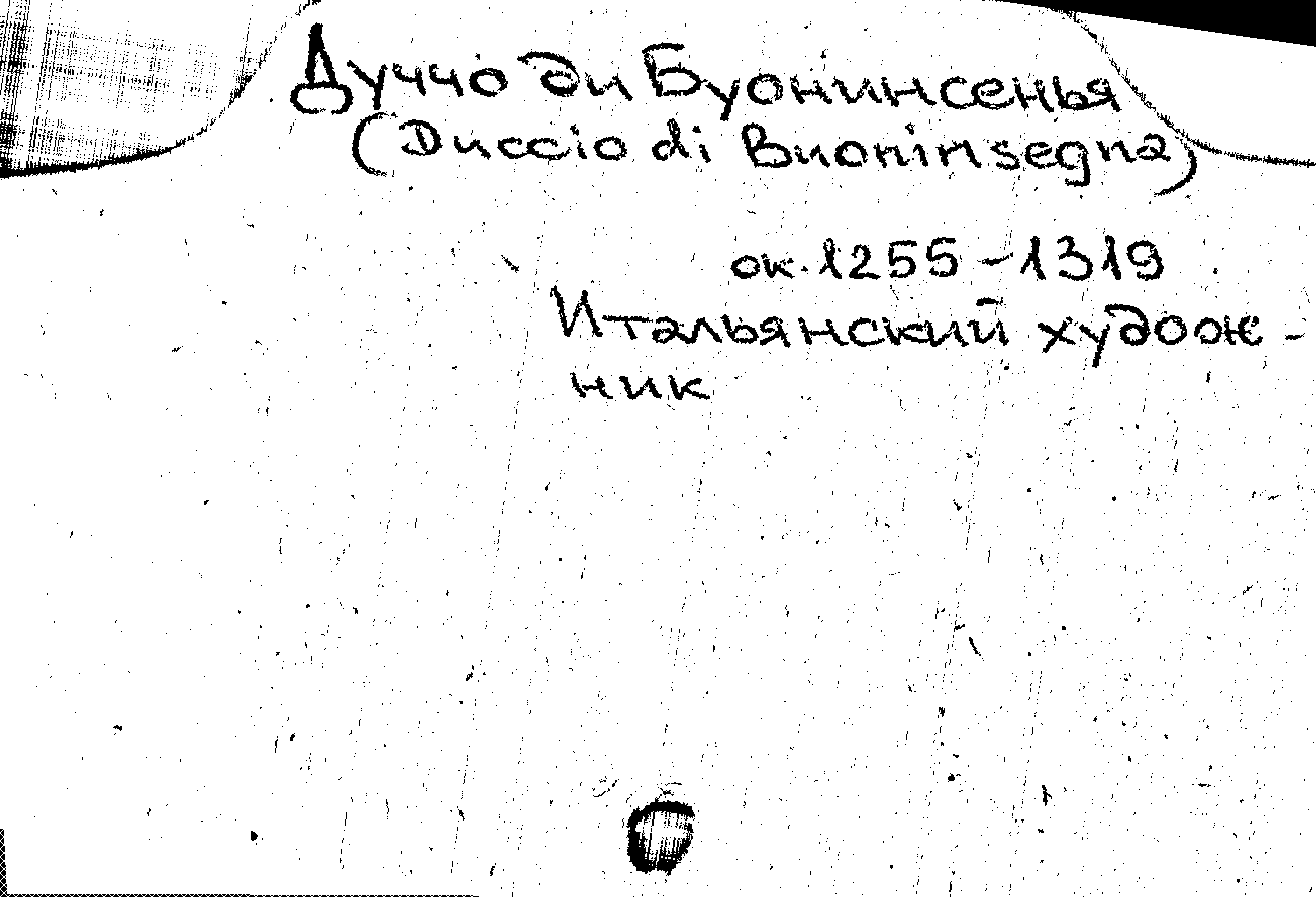 Дуччо ди Буонинсенья
(Duccio di Buoninsegna)
ок. 1255 - 1319
Итальянский худож -
ник